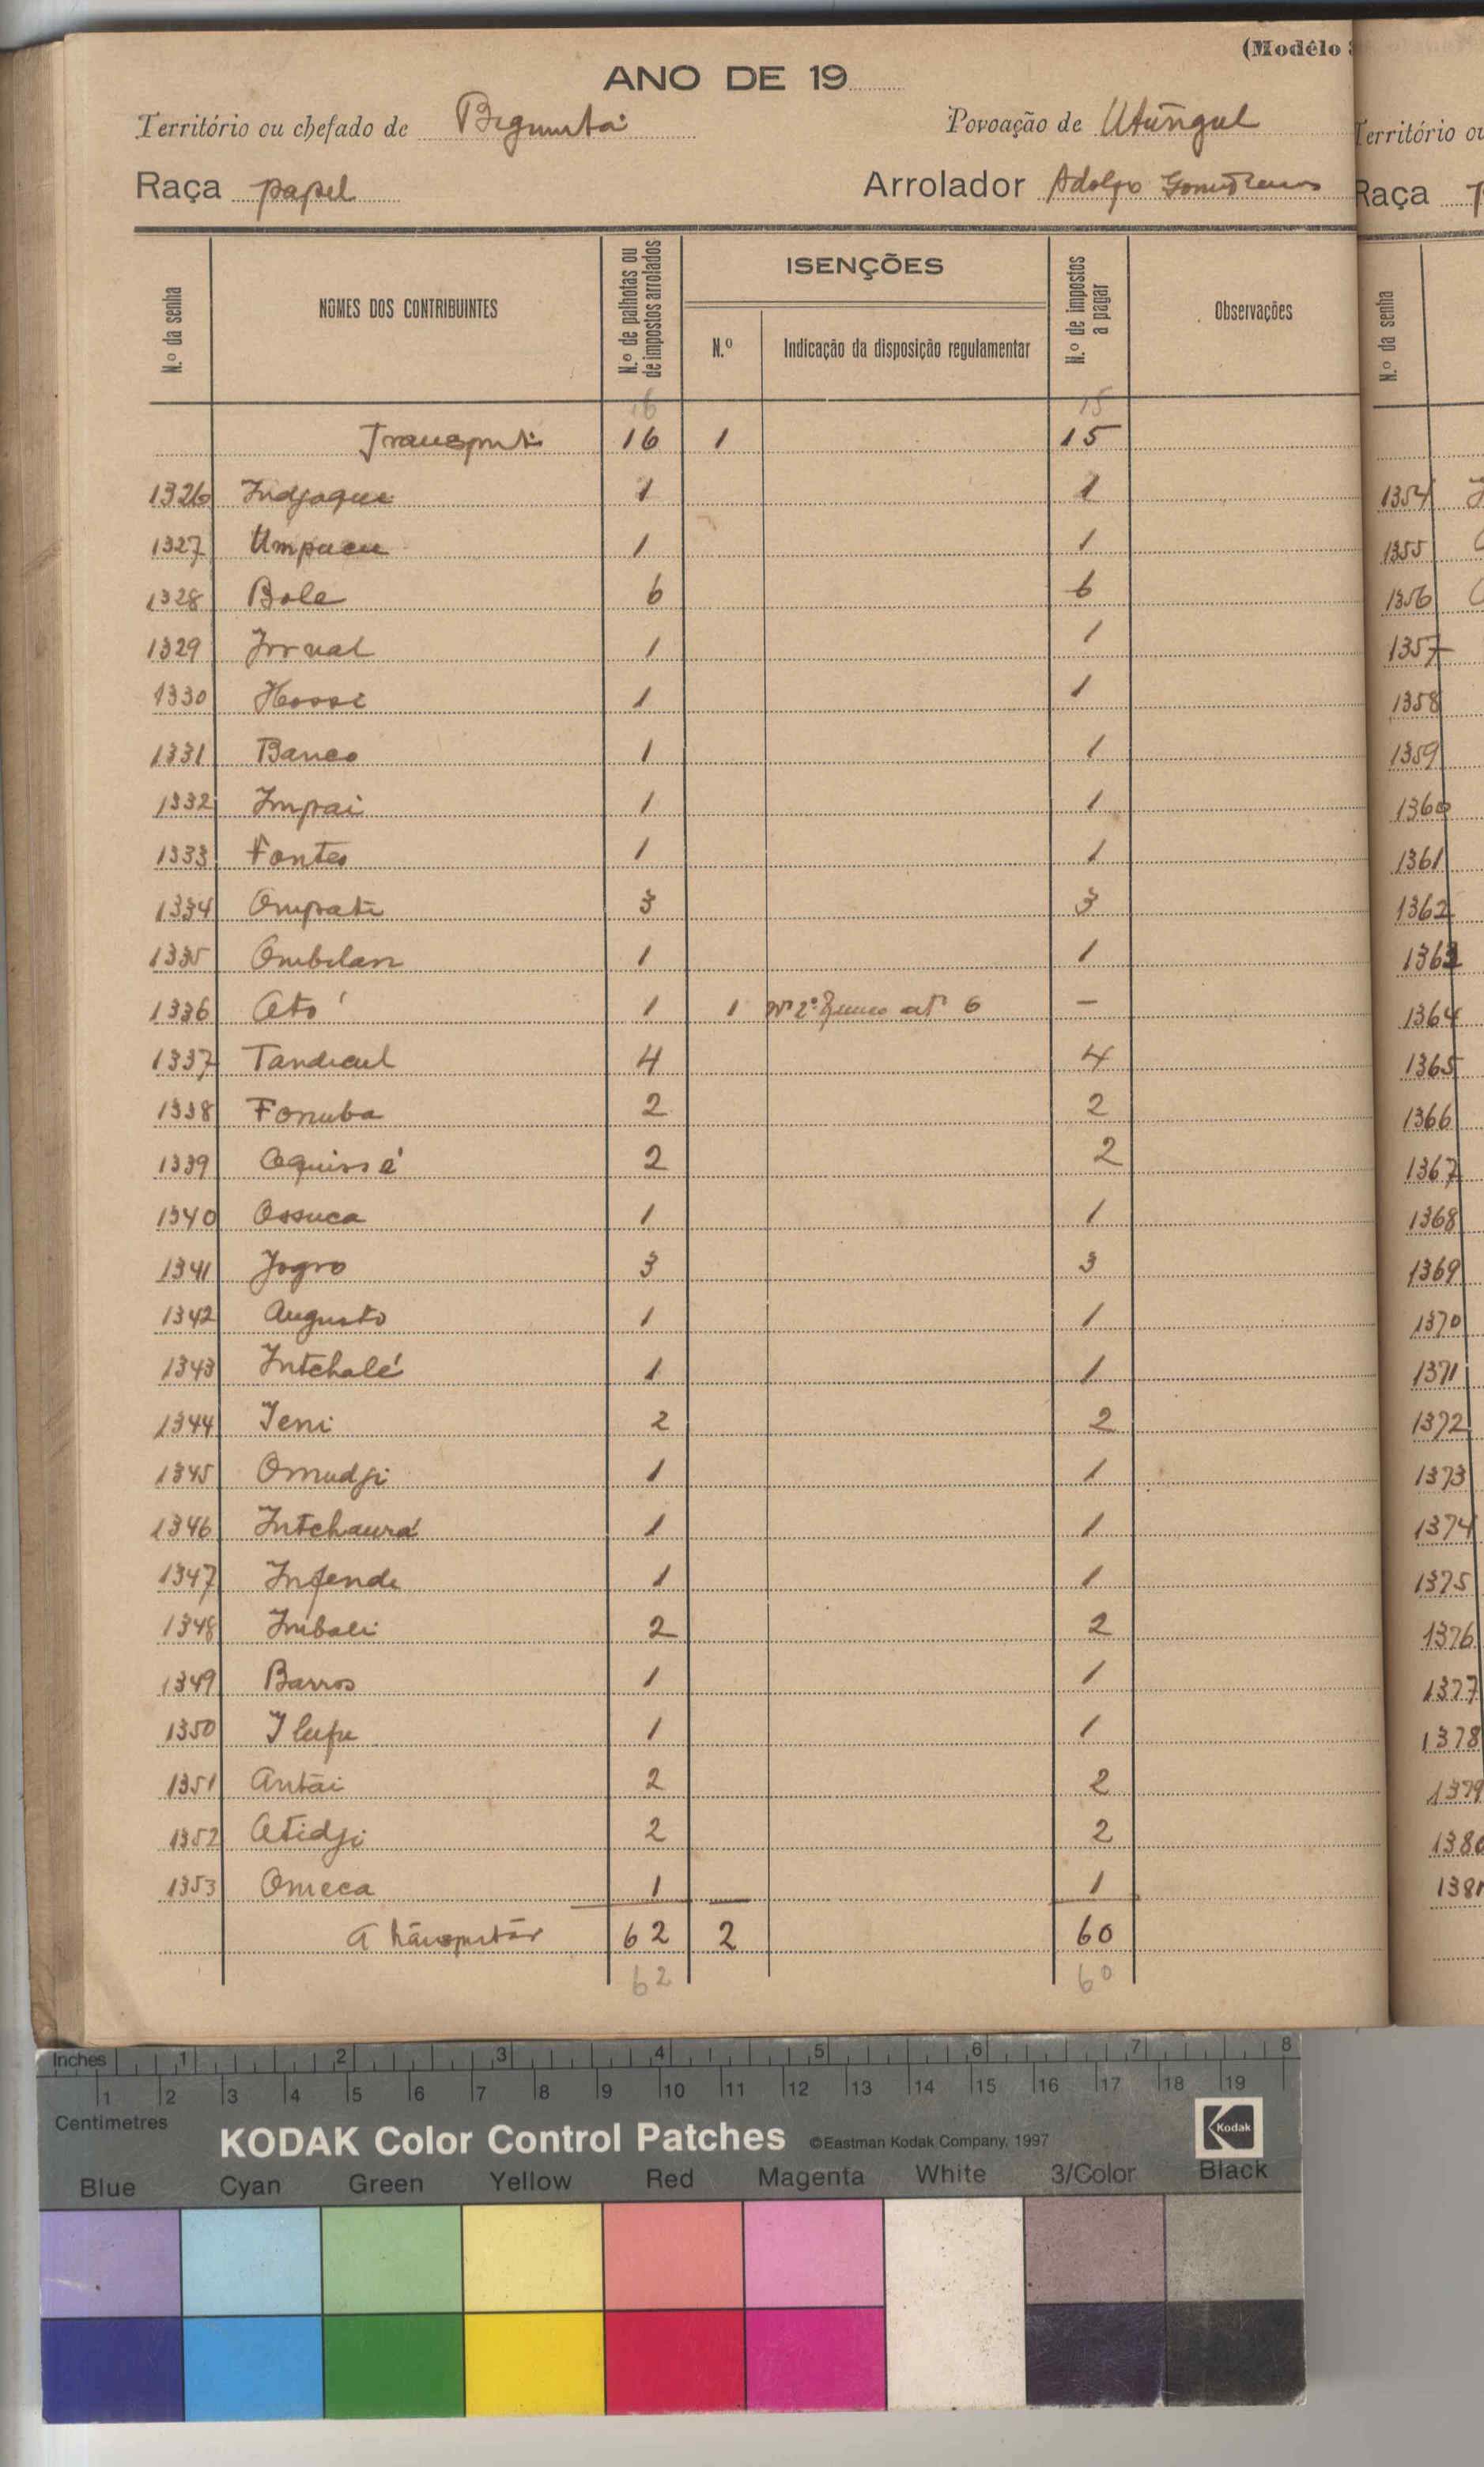 (Modêlo
ANO DE 19
Território ou chefado de Bigunita Povoação de Utungal
Raça papel Arrolador Adolfo
N.º da senha
NOMES DOS CONTRIBUINTES
N.º de palhotas ou de impostos arrolados
ISENÇÕES
N.º
Indicação da disposição regulamentar
N.º de impostos a pagar
Observações
16 15
Transporte 16 1 15
1326 Indjaque 1 1
1327 Umpucu 1 1
1328 Bole 6 6
1329 Jornal 1 1
1330 Hossi 1 1
1331 Banco 1 1
1332 Impai 1 1
1333 Fontes 1 1
1334 Ompati 3 3
1335 Ombilan 1 1
1336 Ató 1 1 Nº 2º artº 6 —
1337 Tandicul 4 4
1338 Fonuba 2 2
1339 Oquissé 2 2
1340 Ossuca 1 1
1341 Jogro 3 3
1342 Augusto 1 1
1343 Intchalé 1 1
1344 Ieni 2 2
1345 Omudji 1 1
1346 Intchaurá 1 1
1347 Infende 1 1
1348 Imbali 2 2
1349 Barros 1 1
1350 Ilufu 1 1
1351 Antái 2 2
1352 Atidji 2 2
1353 Omeca 1 1
A transportar 62 2 60
62 60
Território ou
Raça
N.º da senha
1354
1355
1356
1357
1358
1359
1360
1361
1362
1363
1364
1365
1366
1367
1368
1369
1370
1371
1372
1373
1374
1375
1376
1377
1378
1379
1380
1381
Inches 1 2 3 4 5 6 7 8
1 2 3 4 5 6 7 8 9 10 11 12 13 14 15 16 17 18 19
Centimetres
KODAK Color Control Patches ©Eastman Kodak Company, 1997 Kodak
Blue Cyan Green Yellow Red Magenta White 3/Color Black